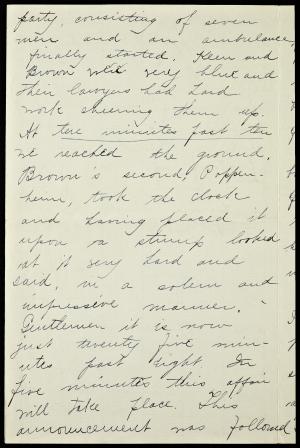 party, consisting of seven
men and an ambulance,
finally started. Keen and
Brown were very blue and
their lawyers had hard
work cheering them up.
At ten minutes past ten
we reached the ground.
Brown's second, Poppen-
heim, took the clock
and having placed it
upon a stump looked
at it very hard and
said, in a solem and
impressive manner, "
Gentlemen it is now
just twenty five min-
utes past eight In
five minutes this affair
will take place. This
announcement was followed